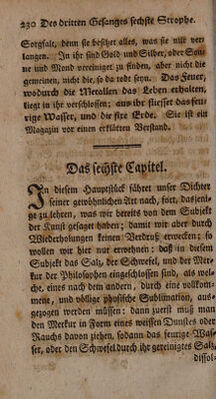 230 Des dritten Gesanges sechste Strophe.
Sorgfalt, denn sie besitzet alles, was sie nur ver-
langen. In ihr sind Gold und Silber, oder Son-
ne und Mond vereiniget zu finden, aber nicht die
gemeinen, nicht die, so da todt seyn. Das Feuer,
wodurch die Metallen das Leben erhalten,
liegt in ihr verschlossen; aus ihr fliesset das feu-
rige Wasser, und die fixe Erde. Sie ist ein
Magazin vor einen erklärten Verstand.
Das sechste Capitel.
In diesem Hauptstück fähret unser Dichter
seiner gewöhnlichen Art nach, fort, dasjeni-
ge zu lehren, was wir bereits von dem Subjekt
der Kunst gesaget haben; damit wir aber durch
Wiederholungen keinen Verdruß erwecken; so
wollen wir hier nur erwehnen: daß in diesem
Subjekt das Salz, der Schwefel, und der Mer-
kur der Philosophen eingeschlossen sind, als wel-
che, eines nach dem andern, durch eine vollkom-
mene, und völlige physische Sublimation, aus-
gezogen werden müssen: dann zuerst muß man
den Merkur in Form eines weissen Dunstes oder
Rauchs davon ziehen, sodann das feurige Was-
ser, oder den Schwefel durch ihr gereinigtes Salz,
dissol-